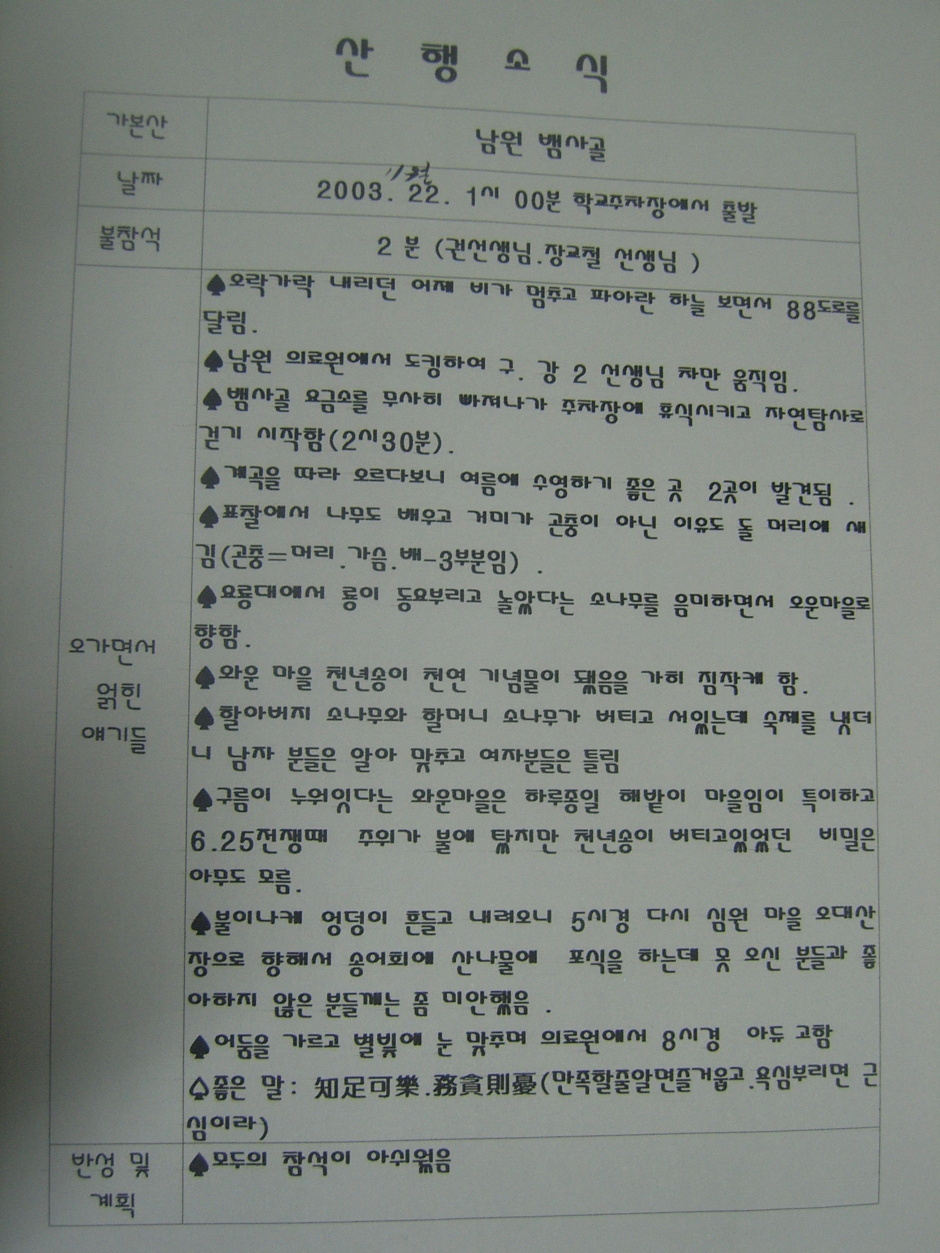 산 행 소 식
가본산
남원 뱀사골
날짜
11월
2003. 22. 1시 00분 학교주차장에서 출발
불참석
2 분 (권선생님.장교철 선생님 )
오가면서
얽힌
얘기들
♠오락가락 내리던 어제 비가 멈추고 파아란 하늘 보면서 88도로를
달림.
♠남원 의료원에서 도킹하여 구. 강 2 선생님 차만 움직임.
♠뱀사골 요금소를 무사히 빠져나가 주차장에 휴식시키고 자연탐사로
걷기 시작함(2시30분).
♠계곡을 따라 오르다보니 여름에 수영하기 좋은 곳 2곳이 발견됨 .
♠표찰에서 나무도 배우고 거미가 곤충이 아닌 이유도 돌 머리에 새
김(곤충=머리.가슴.배-3부분임) .
♠요룡대에서 룡이 동요부리고 놀았다는 소나무를 음미하면서 오운마을로
향함.
♠와운 마을 천년송이 천연 기념물이 됐음을 가히 짐작케 함.
♠할아버지 소나무와 할머니 소나무가 버티고 서있는데 숙제를 냇더
니 남자 분들은 알아 맞추고 여자분들은 틀림
♠구름이 누워잇다는 와운마을은 하루종일 해밭이 마을임이 특이하고
6.25전쟁때 주위가 불에 탔지만 천년송이 버티고있었던 비밀은
아무도 모름.
♠불이나케 엉덩이 흔들고 내려오니 5시경 다시 심원 마을 오대산
장으로 향해서 송어회에 산나물에 포식을 하는데 못 오신 분들과 좋
아하지 않은 분들께는 좀 미안했음 .
♠어둠을 가르고 별빛에 눈 맞추며 의료원에서 8시경 아듀 고함
♤좋은 말: 知足可樂.務貪則憂(만족할줄알면즐거웁고.욕심부리면 근
심이라)
반성 및
계획
♠모두의 참석이 아쉬웠음